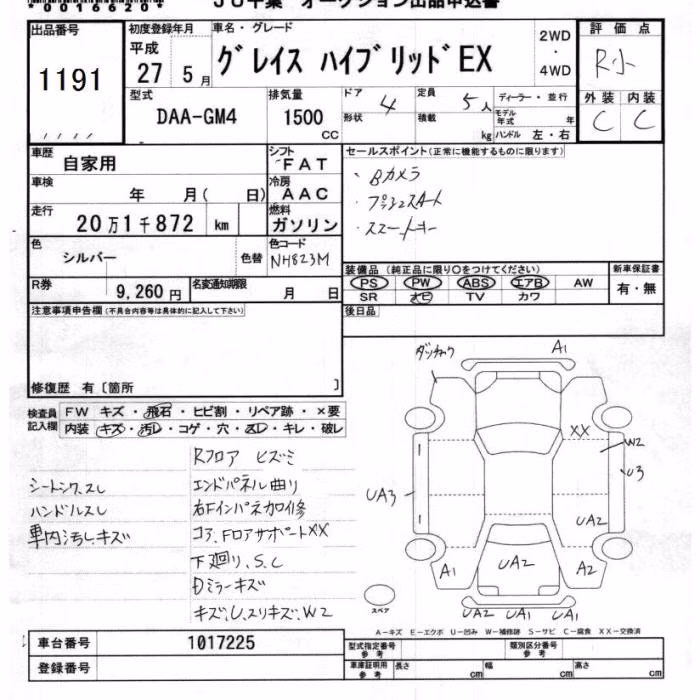 *0016620*
JU千葉 オークション出品申込書
出品番号 初度登録年月 車名・グレード 2WD・4WD 評価点
1191 平成27 5月 グレイス ハイブリッドEX R小
型式 排気量 ドア 4 定員 5人 ディーラー・並行 外装 内装
DAA-GM4 1500CC 形状 積載 kg モデル年式 年 ハンドル 左・右 C C
車歴 自家用 シフト FAT セールスポイント(正常に機能するものに限ります)
車検 年 月( 日) 冷房 AAC ・Bカメラ
走行 20万1千872 km 燃料 ガソリン ・プッシュスタート
色 シルバー 色替 色コード NH823M ・スマートキー
R券 9,260円 名変通知期限 月 日
装備品(純正品に限り○をつけてください) 新車保証書
PS PW ABS エアB AW 有・無
SR ナビ TV カワ
後日品
注意事項申告欄(不具合内容等は具体的に記入して下さい)
修復歴 有〔箇所 〕
検査員記入欄 FW キズ・飛石・ヒビ割・リペア跡・×要
内装 キズ・汚レ・コゲ・穴・スレ・キレ・破レ
シートシワ、スレ
ハンドルスレ
車内汚レ、キズ
Rフロア ヒズミ
エンドパネル曲リ
右Fインパネ加修
コア、FロアサポートXX
下廻リ、S.C
Dミラーキズ
キズ、U、スリキズ、W2
ダッチャク A1
XX
W2
U3
UA3
UA2
UA2
A1 A2
UA2 UA1 UA1
スペア
A-キズ E-エクボ U-凹み W-補修跡 S-サビ C-腐食 XX-交換済
車台番号 1017225 型式指定番号 参考 類別区分番号 参考
登録番号 車庫証明用 参考 長さ cm 幅 cm 高さ cm